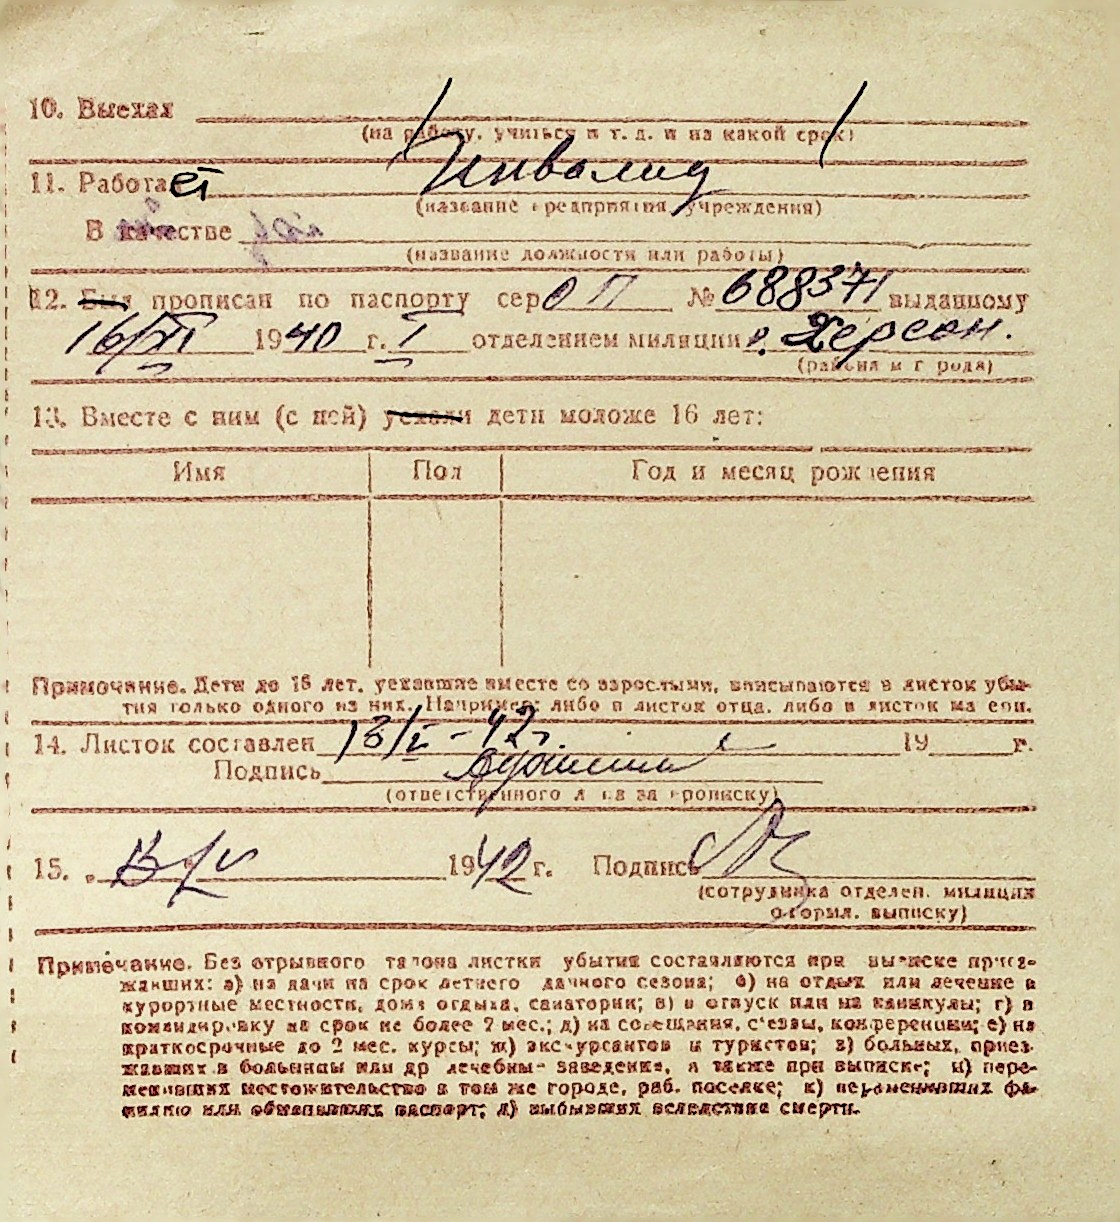 10. Выехал
(на работу, учиться и т. д. и на какой срок)
11. Работает Инвалид
(название предприятия, учреждения)
В качестве
(название должности или работы)
12. Был прописан по паспорту сер ОП № 688371 выданному
16/XI 1940 г. I отделением милиции г. Херсон.
(района и города)
13. Вместе с ним (с ней) уехали дети моложе 16 лет:
Имя Пол Год и месяц рождения
Примечание. Дети до 16 лет, уехавшие вместе со взрослыми, вписываются в листок убы-
тия только одного из них. Например: либо в листок отца, либо в листок матери.
14. Листок составлен 13/I - 42 19 г.
Подпись
(ответственного лица за прописку)
15. „ 1942 г. Подпись
(сотрудника отделен. милиции
оформл. выписку)
Примечание. Без отрывного талона листки убытия составляются при выписке приез-
жавших: а) на дачи на срок летнего дачного сезона; б) на отдых или лечение в
курортные местности, дома отдыха, санатории; в) в отпуск или на каникулы; г) в
командировку на срок не более 2 мес.; д) на совещания, с'езды, конференции; е) на
краткосрочные до 2 мес. курсы; ж) экскурсантов и туристов; з) больных, приез-
жавших в больницы или др лечебны заведения, а также при выписке; и) пере-
менивших местожительство в том же городе, раб. поселке; к) переменивших фа-
милию или обменявших паспорт; л) выбывших вследствие смерти.